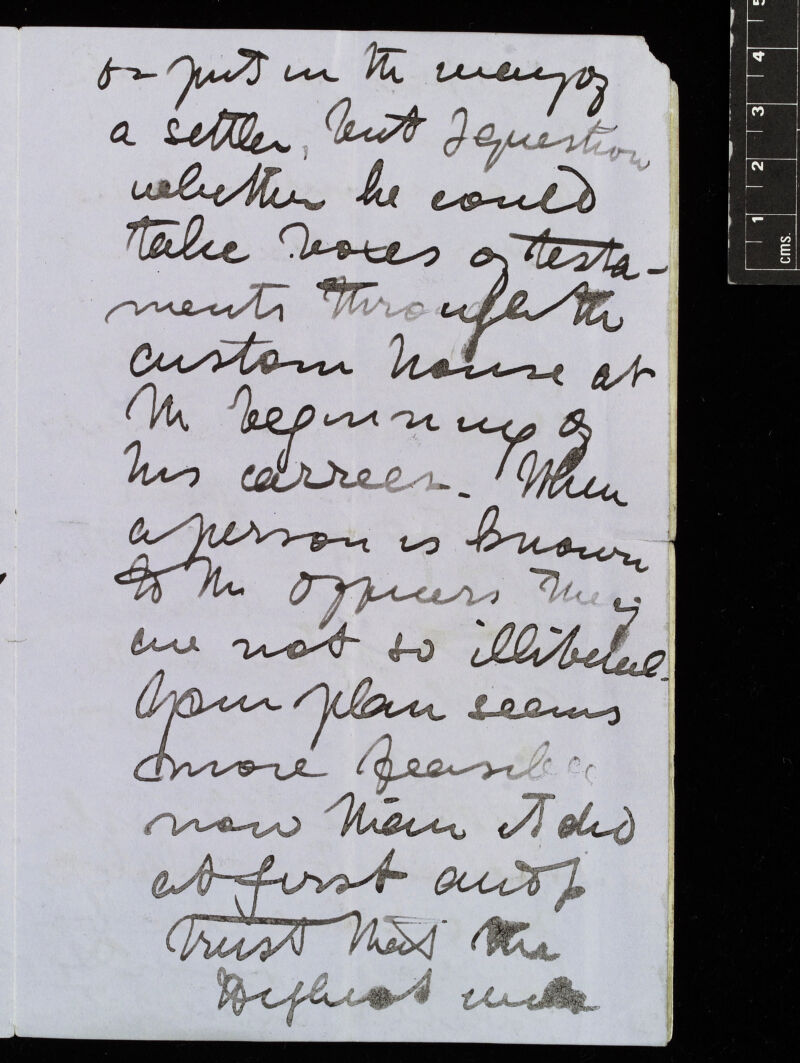 or put in the way of
a settler, but I question
whether he could
take boxes of testa-
ments through the
custom house at
the beginning of
his carreer. When
a person is known
to the officers they
are not so illiberal.
Your plan seems
more feasible
now than it did
at first and I
trust that the
Highest will
cms. 1 2 3 4 5